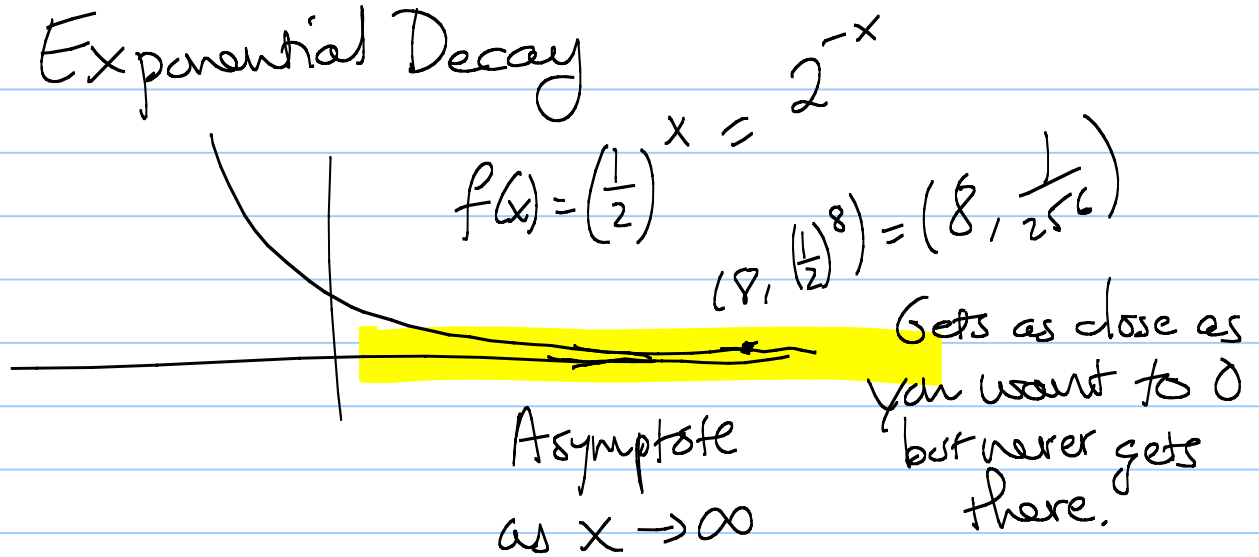 Exponential Decay
f(x) = (1/2)^x = 2^-x
(8, (1/2)^8) = (8, 1/256)
Gets as close as
you want to 0
but never gets
there.
Asymptote
as x → ∞